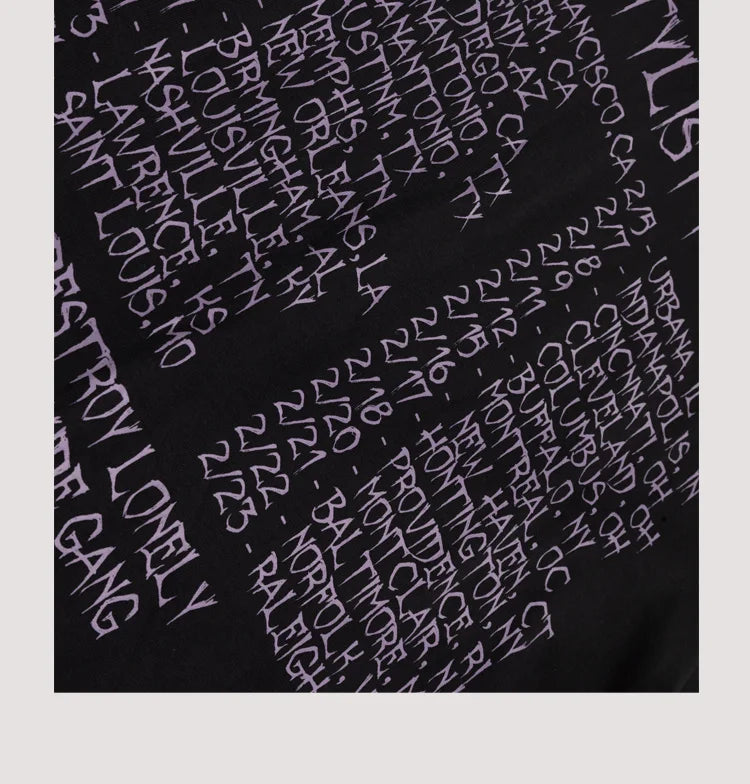 TYLIST
ANCISCO, CA
EM, CA
ENIX, AZ
DIEGO, CA
ANTONIO, TX
USTIN, TX
MEMPHIS, TN
NEW ORLEANS, LA
BIRMINGHAM, AL
LOUISVILLE, KY
- NASHVILLE, TN
- LAWRENCE, KS
SAINT LOUIS, MO
2/5 - URBANA, IL
2/7 - INDIANAPOLIS, IN
2/8 - CINCINNATI, OH
2/9 - CLEVELAND, OH
2/11 - COLUMBUS, OH
2/12 - BUFFALO, NY
2/15 - MONTREAL, QC
2/16 - NEW HAVEN, CT
2/17 - HUNTINGTON, NY
2/18 - PROVIDENCE, RI
2/20 - MONTCLAIR, N
2/21 - BALTIMORE,
2/22 - NORFOLK,
2/23 - RALEIGH
DESTROY LONELY
GANG